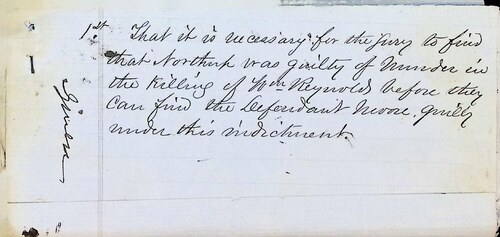 1st. That it is necessary for the Jury to find
that Northup was guilty of Murder in
the Killing of Wm Reynolds before they
can find the Defendant Moore, guilty
under this indictment.
Given